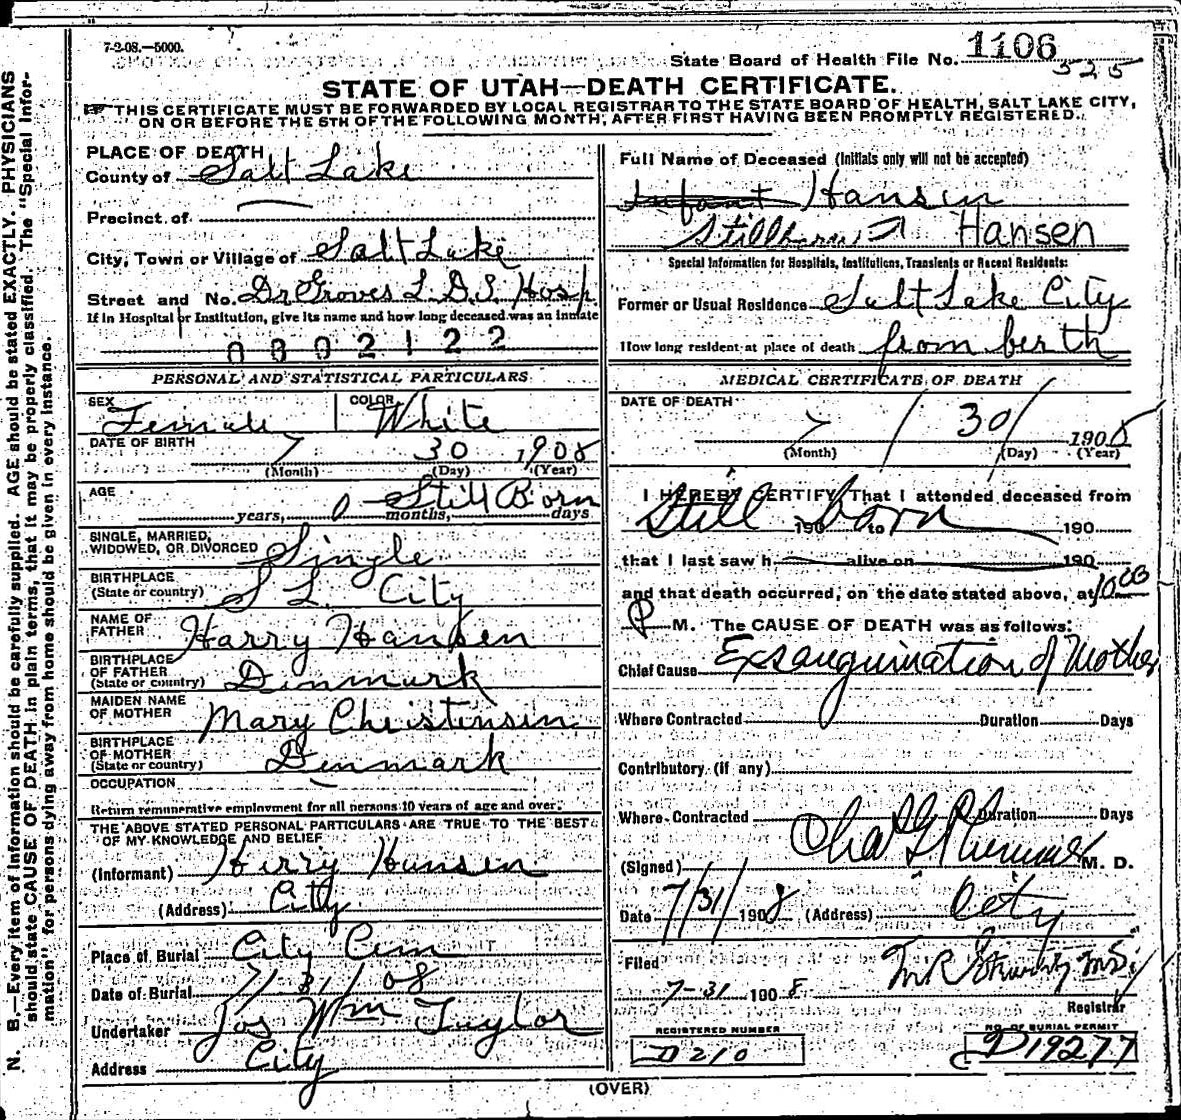 7-2-08.—5000.
State Board of Health File No. 1106
525
STATE OF UTAH—DEATH CERTIFICATE.
THIS CERTIFICATE MUST BE FORWARDED BY LOCAL REGISTRAR TO THE STATE BOARD OF HEALTH, SALT LAKE CITY,
ON OR BEFORE THE 5TH OF THE FOLLOWING MONTH, AFTER FIRST HAVING BEEN PROMPTLY REGISTERED.
N. B.—Every item of information should be carefully supplied. AGE should be stated EXACTLY. PHYSICIANS
should state CAUSE OF DEATH in plain terms, that it may be properly classified. The "Special Infor-
mation" for persons dying away from home should be given in every instance.
PLACE OF DEATH
County of Salt Lake
Precinct of
City, Town or Village of Salt Lake
Street and No. Dr Groves L.D.S. Hosp
If in Hospital or Institution, give its name and how long deceased was an inmate
0802122
PERSONAL AND STATISTICAL PARTICULARS
SEX Female COLOR White
DATE OF BIRTH 7 30 1908
(Month) (Day) (Year)
AGE 0 Still Born
years, months, days
SINGLE, MARRIED,
WIDOWED, OR DIVORCED Single
BIRTHPLACE
(State or country) S L City
NAME OF
FATHER Harry Hansen
BIRTHPLACE
OF FATHER
(State or country) Denmark
MAIDEN NAME
OF MOTHER Mary Christensen
BIRTHPLACE
OF MOTHER
(State or country) Denmark
OCCUPATION
Return remunerative employment for all persons 10 years of age and over.
THE ABOVE STATED PERSONAL PARTICULARS ARE TRUE TO THE BEST
OF MY KNOWLEDGE AND BELIEF
(Informant) Harry Hansen
(Address) City
Place of Burial City Cem
Date of Burial 7/31/08
Undertaker Jos Wm Taylor
Address City
Full Name of Deceased (Initials only will not be accepted)
Infant Hansen
Stillborn Hansen
Special Information for Hospitals, Institutions, Transients or Recent Residents:
Former or Usual Residence Salt Lake City
How long resident at place of death from berth
MEDICAL CERTIFICATE OF DEATH
DATE OF DEATH
7 / 30 / 1908
(Month) (Day) (Year)
I HEREBY CERTIFY, That I attended deceased from
Still Born 190 to 190
that I last saw h alive on 190
and that death occurred, on the date stated above, at 10.00
P M. The CAUSE OF DEATH was as follows:
Chief Cause Exsanguination of Mother
Where Contracted Duration Days
Contributory (if any)
Where Contracted Duration Days
(Signed) Chas G M. D.
Date 7/31/1908 (Address) City
Filed
7-31 1908
Registrar
REGISTERED NUMBER
D 210
NO. OF BURIAL PERMIT
D19277
(OVER)